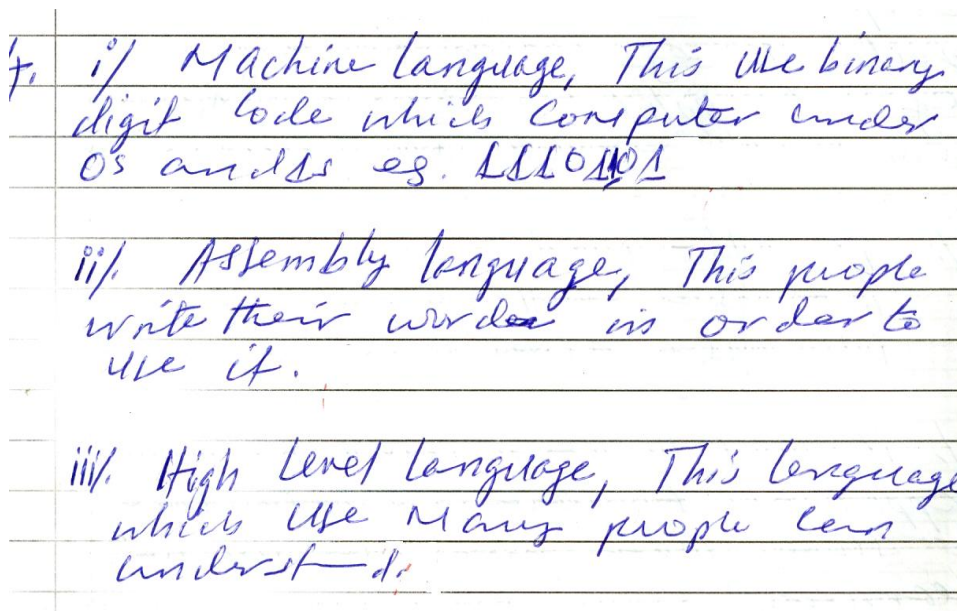 7. i/ Machine language, This Use binary
digit Code which Computer under
0s and 1s eg. 1110101
ii/. Assembly language, This people
write their words in order to
use it.
iii/. High Level Language, This language
which Use Many people can
understand.